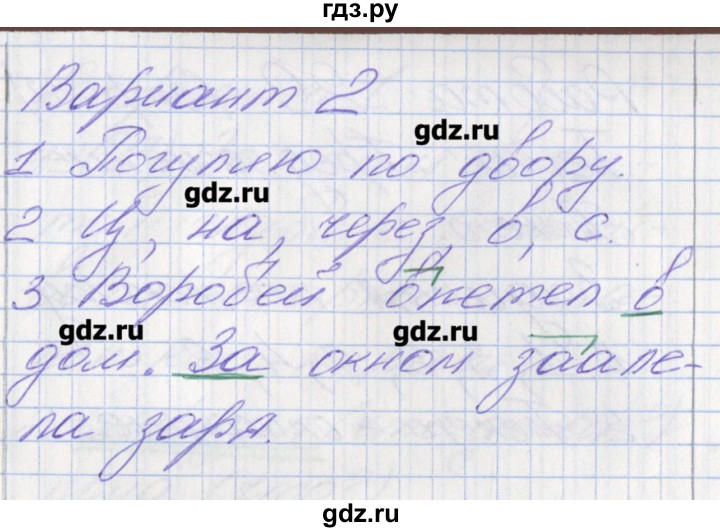 гдз.ру
Вариант 2
gdz.ru
1 Погуляю по двору.
gdz.ru
2 Из, на, через, в, с.
3 Воробей влетел в
gdz.ru
gdz.ru
дом. За окном заале-
ла заря.
gdz.ru
gdz.ru